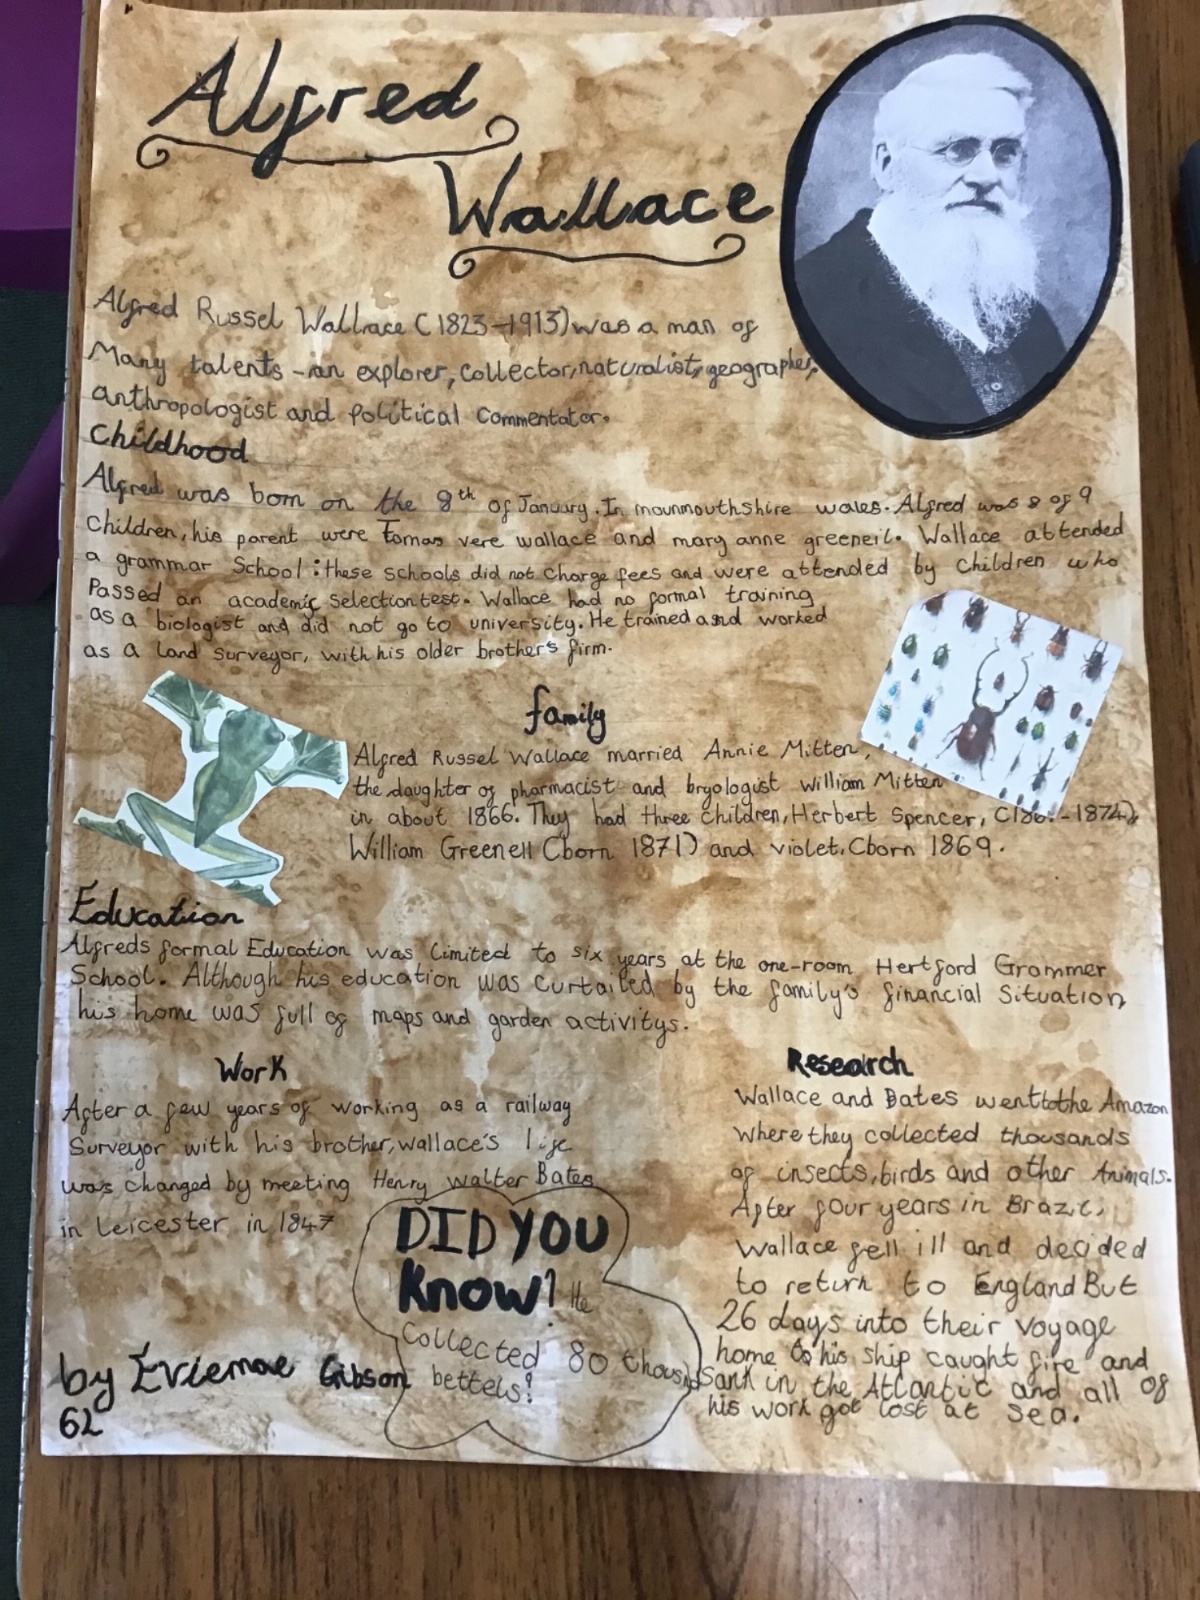 Alfred
Wallace
Alfred Russel Wallrace (1823-1913) was a man of
Many talents - an explorer, collector, naturalist, geographer,
anthropologist and political commentator.
Childhood
Alfred was born on the 8th of January. In mounmouthshire wales. Alfred was 8 of 9
Children, his parent were Tomas vere wallace and mary anne greeneil. Wallace attended
a grammar School: these schools did not charge fees and were attended by children who
Passed an academic selection test. Wallace had no formal training
as a biologist and did not go to university. He trained and worked
as a land surveyor, with his older brother's firm.
family
Alfred Russel Wallace married Annie Mitten,
the daughter of pharmacist and bryologist William Mitten
in about 1866. They had three children, Herbert Spencer, -1874),
William Greenell (born 1871) and violet. (born 1869.
Education
Alfreds formal Education was limited to six years at the one-room Hertford Grammer
School. Although his education was curtailed by the family's financial situation,
his home was full of maps and garden activitys.
Work
After a few years of working as a railway
Surveyor with his brother, wallace's life
was changed by meeting Henry walter Bates
in Leicester in 1847
DID YOU
Know? He
Collected 80 thousand
bettels!
by Eviemae Gibson
6L
Research
Wallace and Bates went to the Amazon
where they collected thousands
of insects, birds and other Animals.
After four years in Brazil,
Wallace fell ill and decided
to return to England But
26 days into their voyage
home his ship caught fire and
Sank in the Atlantic and all of
his work got lost at sea.